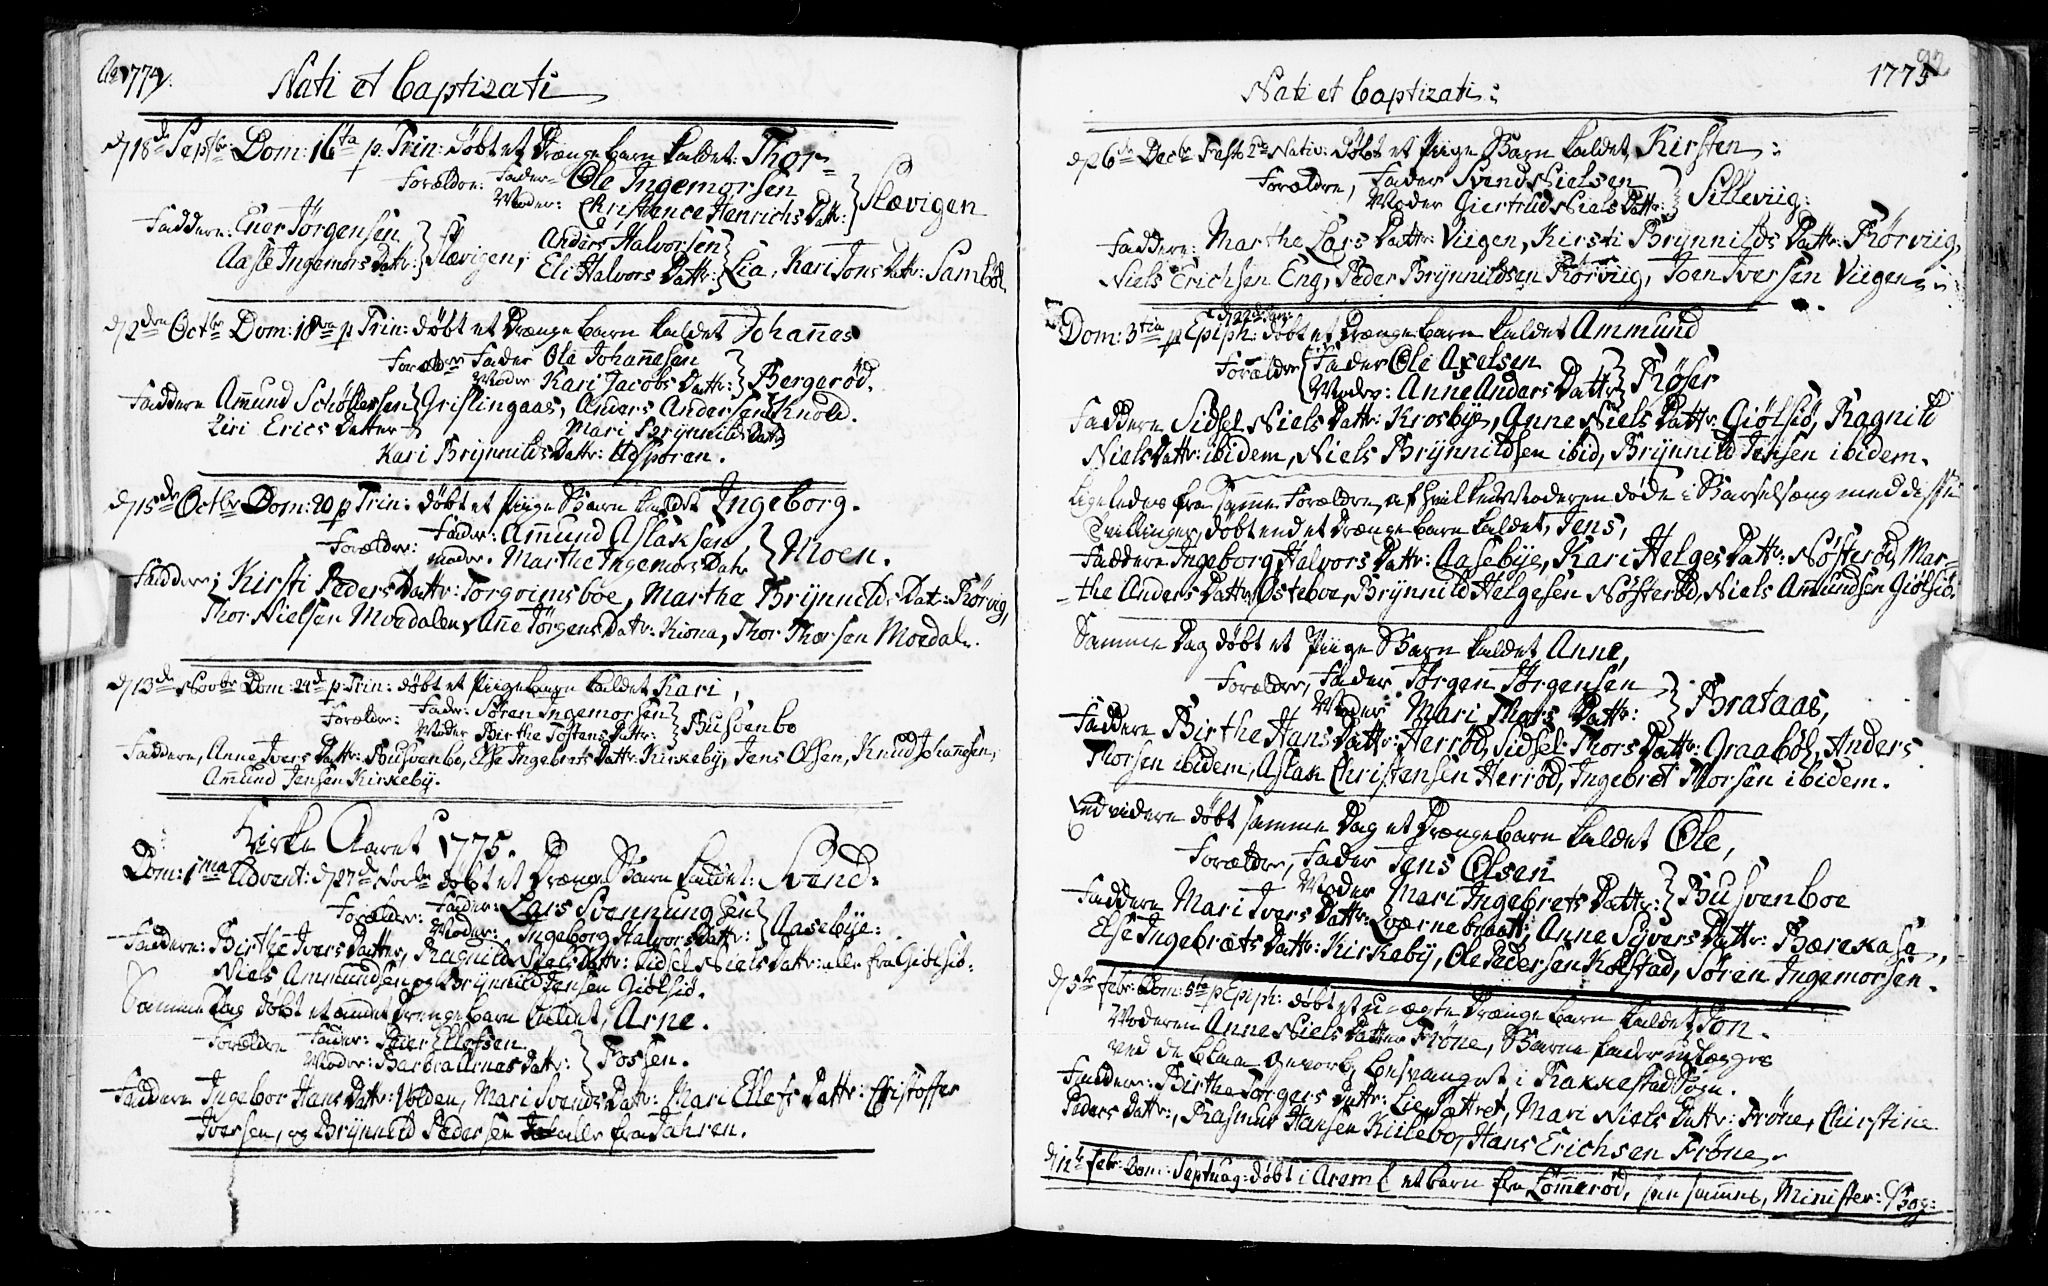 Ao 1774:
Nati et baptizati
d 18de Septbr Dom: 16ta p. Trin: døbt et Drænge barn kaldet: Thor
Forældre: Fader Ole Ingemorsen
Moder: Christence Henrichs Dattr: } Slævigen
Faddere: Ener Jørgensen Anders Halvorsen
Aasle Ingemors Dattr: } Slævigen, Eli Halvors Dattr: } Lia, Kari Jons Dattr: Sambøl
d 2den Octbr Dom: 18va p Trin: døbt et Drænge barn kaldet Johannes
Forældre Fader Ole Johannesen
Moder Kari Jacobs Dattr: } Bergerød.
Faddere Amund Schøttersen } Grislingaas, Anders Andersen Knold.
Siri Erics Datter Mari Brynnilds Dattr
Kari Brynnilds Dattr: Udsporen.
d 15de Octbr Dom: 20 p Trin: døbt et Piige Barn kaldet Ingeborg.
Forældre: Fader: Amund Aslaksen
moder. Marthe Ingemors Datr } Moen.
Faddere; Kirsti Peders Dattr: Torgoimsboe, Marthe Brynnilds Datr: Rørvig,
Thor Nielsen Moedalen, Anne Jørgens Datr: Kiona, Thor Thorsen Moedal.
d 13de Novbr Dom: 24de p. Trin: døbt et Piige barn kaldet Kari,
Forældre: Fader: Søren Ingemorsen
Moder Birthe Tostens Dattr: } Busvenbo
Faddere, Anne Ivers Dattr: Busvenbo, Else Ingebrets Dattr: Kirkeby, Jens Olsen, Knud Johannesen,
Amund Jensen Kirkeby.
Kirke Aaret 1775.
Dom: 1ma Advent: d 27de Novbr døbt et Drænge Barn kaldet: Svend:
Forældre: Fader: Lars Svennungsen
Moder: Ingeborg Halvors Dattr: } Aasebye:
Faddere: Birthe Ivers Datter, Ragnild Niels Dattr: Sidsel Niels Dattr: alle fra Giølsiø.
Niels Ammundsen og Brynnild Jensen Giølsiø.
Samme Dag døbt et andet Drenge barn kaldet, Arne.
Forældre Fader: Peder Ellefsen
Moder: Barbra Arnes Dattr: } Fossen.
Faddere Ingebor Hans Dattr: Volden, Mari Svends Dattr: Mari Ellefs Dattr: Christoffer
Iversen, og Brynnild Pedersen alle fra Jahren.
92
1775
Nati et baptizati:
d 26de Decbr Fest: 2de Nativ: døbt et Piige Barn kaldet Kirsten:
Forældre, Fader Svend Nielsen
Moder Giertrud Niels Dattr: } Silleviig:
Faddere: Marthe Lars Dattr: Viigen, Kirsti Brynnilds Dattr: Rørviig,
Niels Erichsen Eng, Peder Brynnildsen Rørviig, Joen Iversen Viigen
d 22de Jan:
Dom: 3tia p Epiph: døbt et Drænge barn kaldet Ammund
Forældre { Fader Ole Axelsen
Moder: Anne Anders Dattr } Røser
Faddere Sidsel Niels Dattr: Krosbye, Anne Niels Dattr: Giølsiø, Ragnild
Niels Dattr: ibidem, Niels Brynnildsen ibid, Brynnild Jensen ibidem.
ligeledes fra samme Forældre, af hvilke Moderen døde i Barselsæng med disse
Tvillinger, døbt end et Drænge barn kaldet, Jens,
Faddere Ingeborg Halvors Dattr: Aasebye, Kari Helges Dattr: Nøsterød, Mar-
the Anders Dattr Østeboe, Brynnild Helgesen Nøsterød, Niels Ammundsen Giølsiø:
Samme Dag døbt et Piige Barn kaldet Anne,
Forældre, Fader Jørgen Jørgensen
Moder: Mari Thors Dattr: } Brataas,
Faddere Birthe Hans Dattr: Herrød, Sidsel: Thors Dattr: Graabøl, Anders
Thorsen ibidem, Aslak Christensen Herrød, Ingebret Thorsen ibidem.
Endvidere døbt samme Dag et Drænge barn kaldet Ole,
Forældre, Fader Jens Olsen
Moder Mari Ingebrets Dattr: } Busvenboe
Faddere Mari Ivers Dattr: Qværnebraatt, Anne Syvers Dattr: Bærekase,
Else Ingebræts Dattr: Kirkeby, Ole Pedersen Kolstad, Søren Ingemorsen.
d 5te febr: Dom: 5te p Epiph: døbt et u-ægte Drænge barn kaldet Jon.
Moderen Anne Niels Datter Frøne, Barne fader udlægges
ved de blaa besvangret i Rakkestad Sogn.
Faddere: Birthe Jørgers Dattr: Liesættret, Mari Niels Dattr: Frøne, Christine
Peders Dattr:, Rasmus Hansen Kiilebo, Hans Erichsen Frøne,
d 12te febr: Dom: Septuag: døbt i Aremk et barn fra Lømmerød, see samme Minister: Bog: